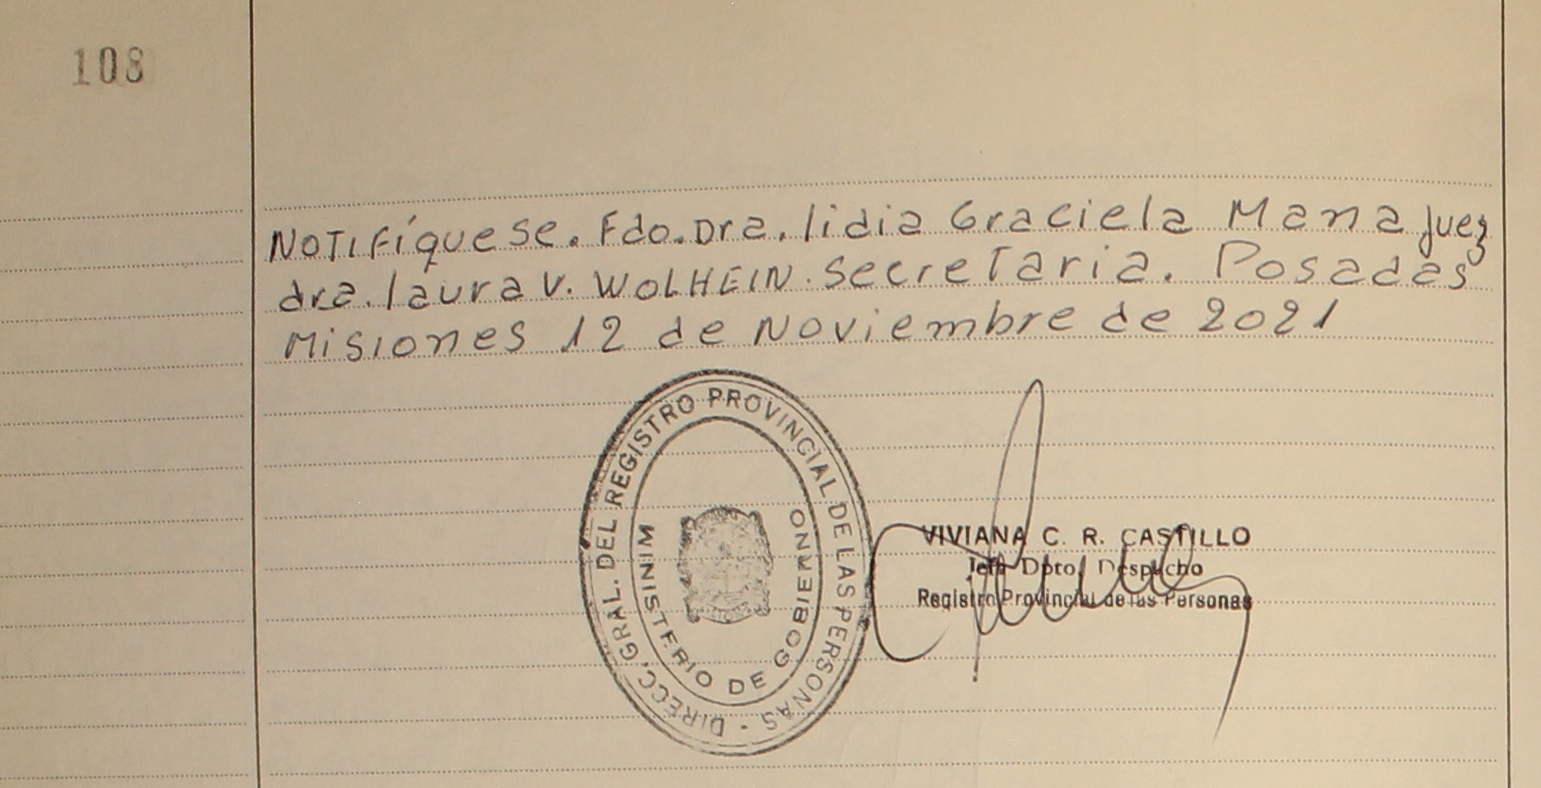 108
NOTIFíquese. Fdo. Dra. lidia Graciela Mana juez
dra. laura V. WOLHEIN. Secretaria. Posadas
Misiones 12 de Noviembre de 2021
DIRECC. GRAL. DEL REGISTRO PROVINCIAL DE LAS PERSONAS -
MINISTERIO DE GOBIERNO
VIVIANA C. R. CASTILLO
Jefa Dpto. Despacho
Registro Provincial de las Personas